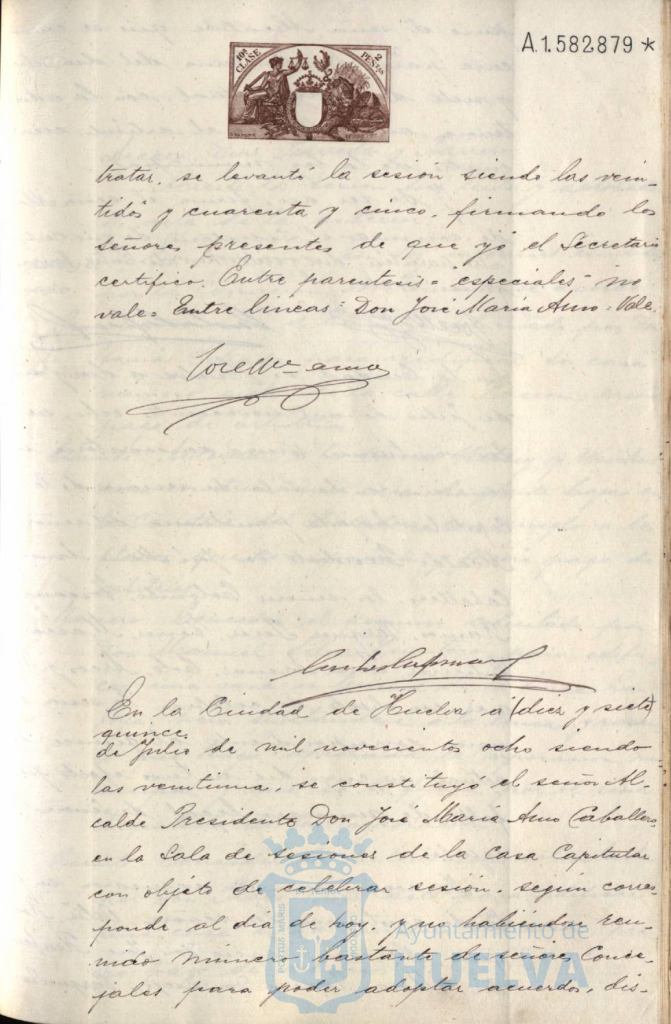 A.1.582879 *
10ª CLASE 2 PESETAS
tratar, se levantó la sesión siendo las vein-
tidós y cuarenta y cinco, firmando los
señores presentes de que yo el Secretario
certifico. Entre parentesis = especiales = no
vale = Entre lineas = Don José María Amo = Vale.
José Mª amo
En la Ciudad de Huelva a (diez y siete)
quince
de Julio de mil novecientos ocho siendo
las veintiuna, se constituyó el señor Al-
calde Presidente Don José María Amo Caballero
en la Sala de sesiones de la Casa Capitular
con objeto de celebrar sesión, según corres-
ponde al día de hoy, y no habiendose reu-
nido número bastante de señores Conce-
jales para poder adoptar acuerdo, dis-
Ayuntamiento de
HUELVA
PORTUS MARIS